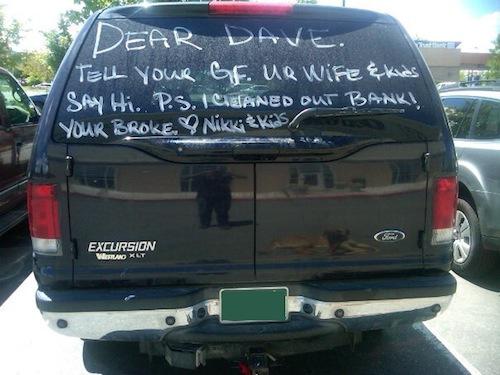 DEAR DAVE.
TELL YOUR GF. UR WIFE & kids
SAY Hi. P.S. I CLEANED OUT BANK!
YOUR BROKE. ♡ Nikki & KidS
EXCURSION
XLT
Ford